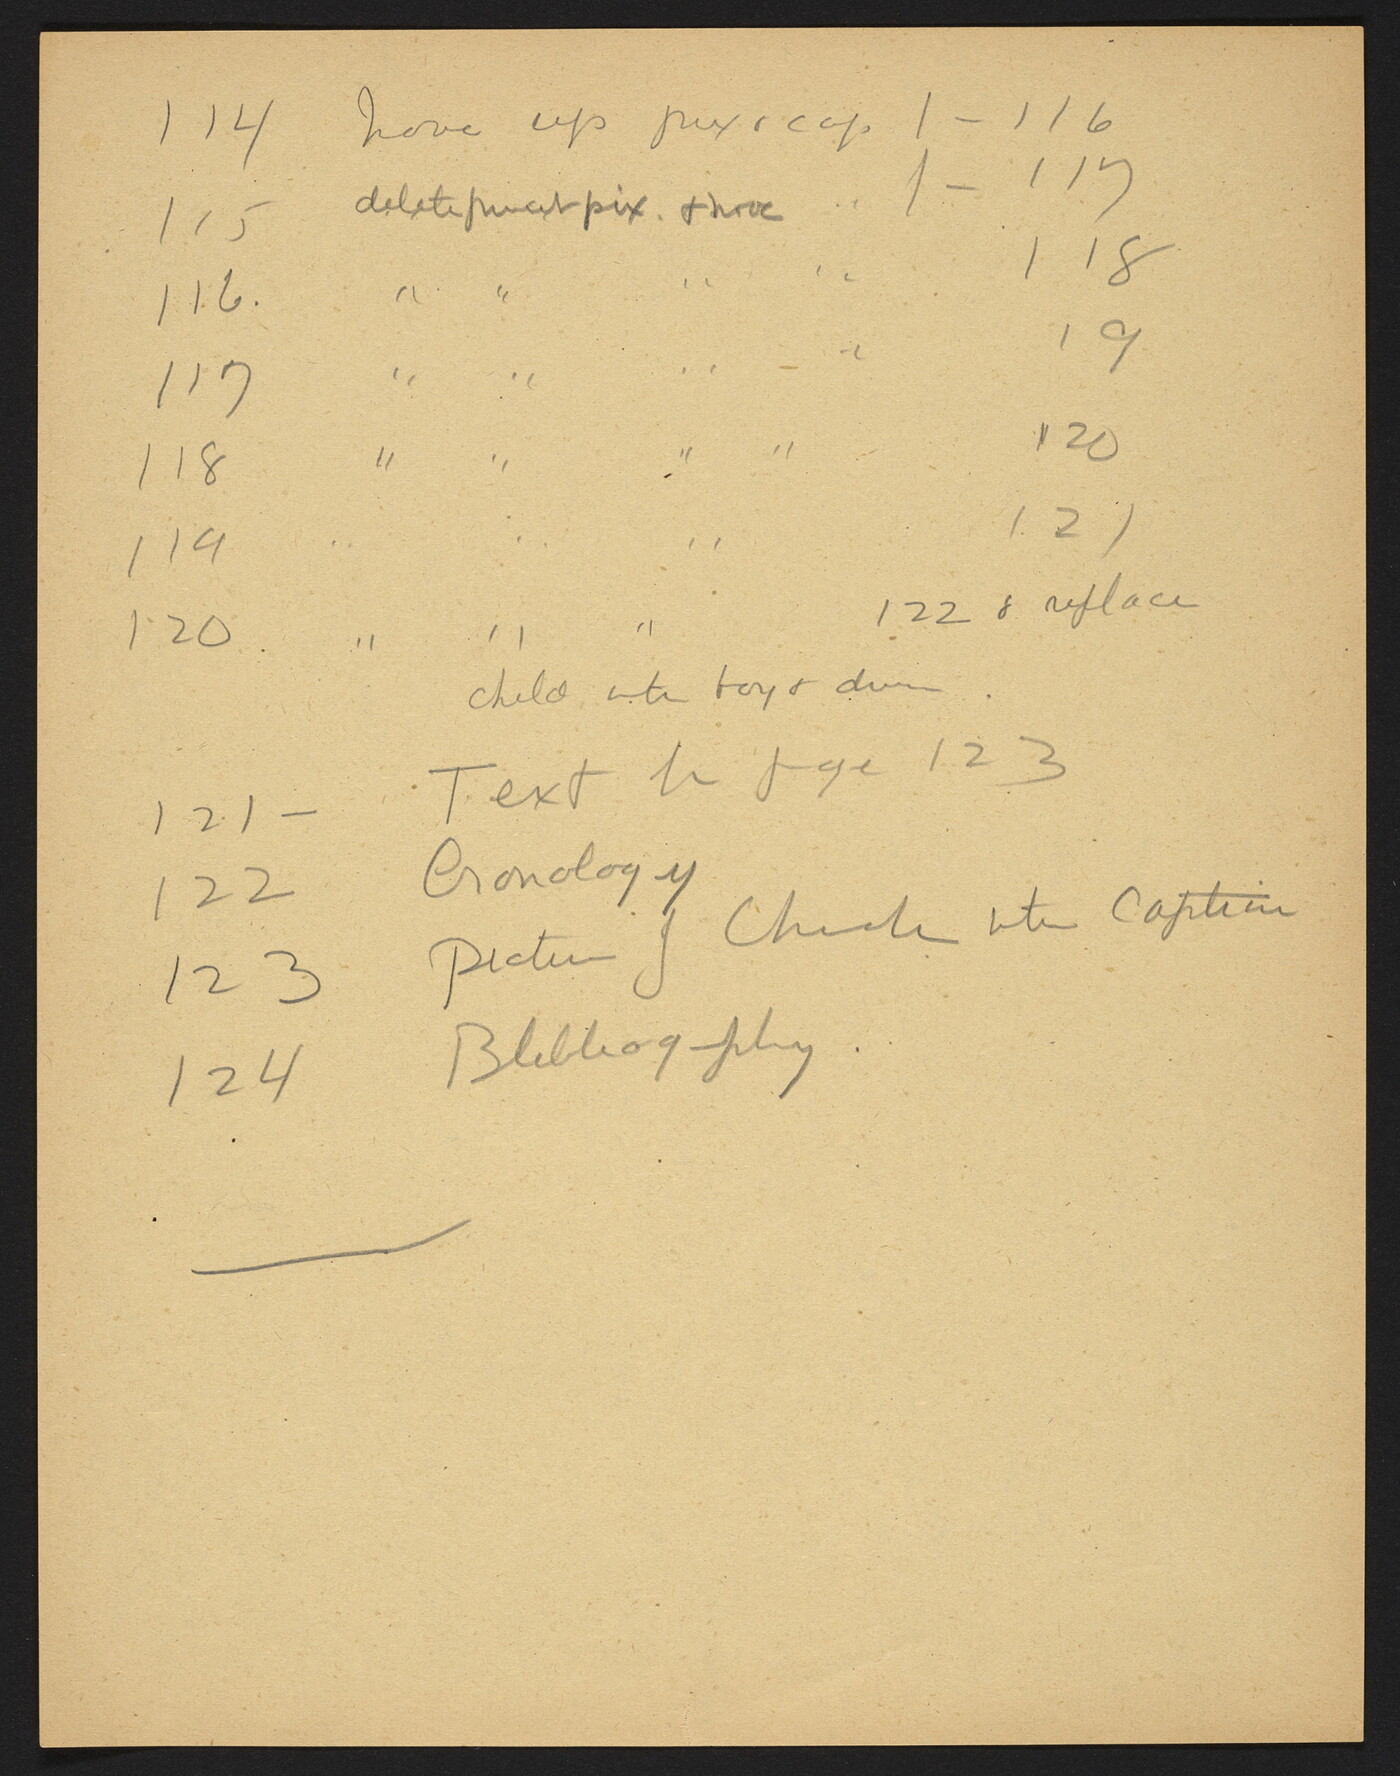 114 move up pix & cap f - 116
115 delete present pix. & move " f - 117
116. " " " " 118
117 " " " " 19
118 " " " " 120
119 " " " 121
120. " " " 122 & replace
child with toy & drum.
121 - Text for page 123
122 Cronology
123 picture of Church with Caption
124 Blibliography.